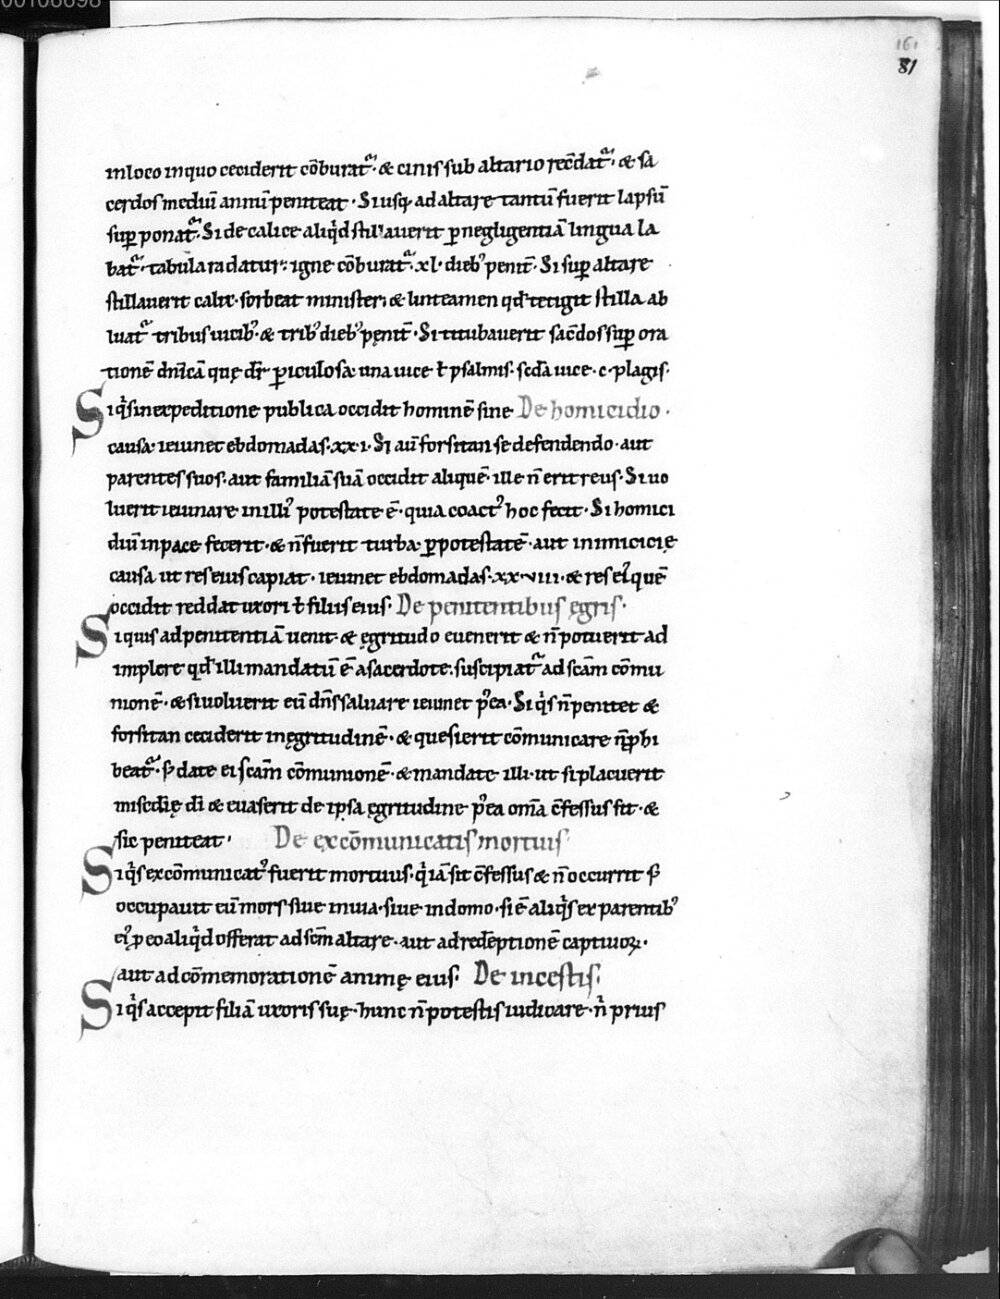 00106698
161
81
inloco inquo ceciderit cōburatᷓ· & cinis sub altario recd̄atᷓ· & sa
cerdos mediū annū peniteat · Si usq; ad altare tantū fuerit lapsū
suꝑ ponatᷓ. Si de calice aliq̇d stillauerit ꝑ negligentiā lingua la
batᷓ· tabula radatur· igne cōburatᷓ· xl· dieb; penit̄· Si suꝑ altare
stillauerit calix· sorbeat minister; & linteamen qd̄ tetigit stilla ab
luatᷓ tribus uicib;· & trib; dieb; pęnit̄ · Si titubauerit sacd̄os suꝑ ora
tionē dn̄icā quę dr̄ ꝑiculosa· una uice ł psalmis· scd̄a uice· c· plagis·
Siq̇s inexpeditione publica occidit hominē sine De homicidio ·
causa· ieiunet ebdomadas· xx·i· Si aū forsitan se defendendo· aut
parentes suos· aut familiā suā occidit aliquē· ille n̄ erit reus· Si uo
luerit ieiunare inilli' potestate ē· quia coact' hoc fecit· Si homici
diū inpace fecerit· & n̄ fuerit turba· ꝑ potestatē· aut inimicicię
causa ut res eius capiat· ieiunet ebdomadas· xx·viii· & res ei' quē
occidit reddat uxori ł filiis eius· De penitentibus ęgris·
Siquis ad penitentiā uenit· & ęgritudo euenerit & n̄ potuerit ad
implere qd̄ illi mandatū ē a sacerdote· suscipiatᷓ ad scām cōmu
nionē· & si uoluerit eū dn̄s saluare ieiunet p'ea· Siq̇s n̄ penitet &
forsitan ceciderit inęgritudinē· & quesierit cōmunicare n̄ ꝓhi
beatᷓ· s; date ei scam̄ cōmunionē· & mandate illi· ut si placuerit
mis̄cdię dī & euaserit de ipsa ęgritudine p'ea om̄a c̄fessus sit· &
sic peniteat· De excōmunicatis mortuis·
Siq̇s excōmunicat' fuerit mortuus· q̇ iā sit c̄fessus & n̄ occurrit s;
occupauit eū mors siue inuia· siue indomo· si ē aliq̇s ex parentib;
ei' ꝑ eo aliq̇d offerat ad scm̄ altare· aut ad redēptionē captiuoꝝ·
aut ad cōmemorationē animę eius· De incestis·
Siq̇s accepit filiā uxoris suę· hunc n̄ potestis iudicare· n̄ prius